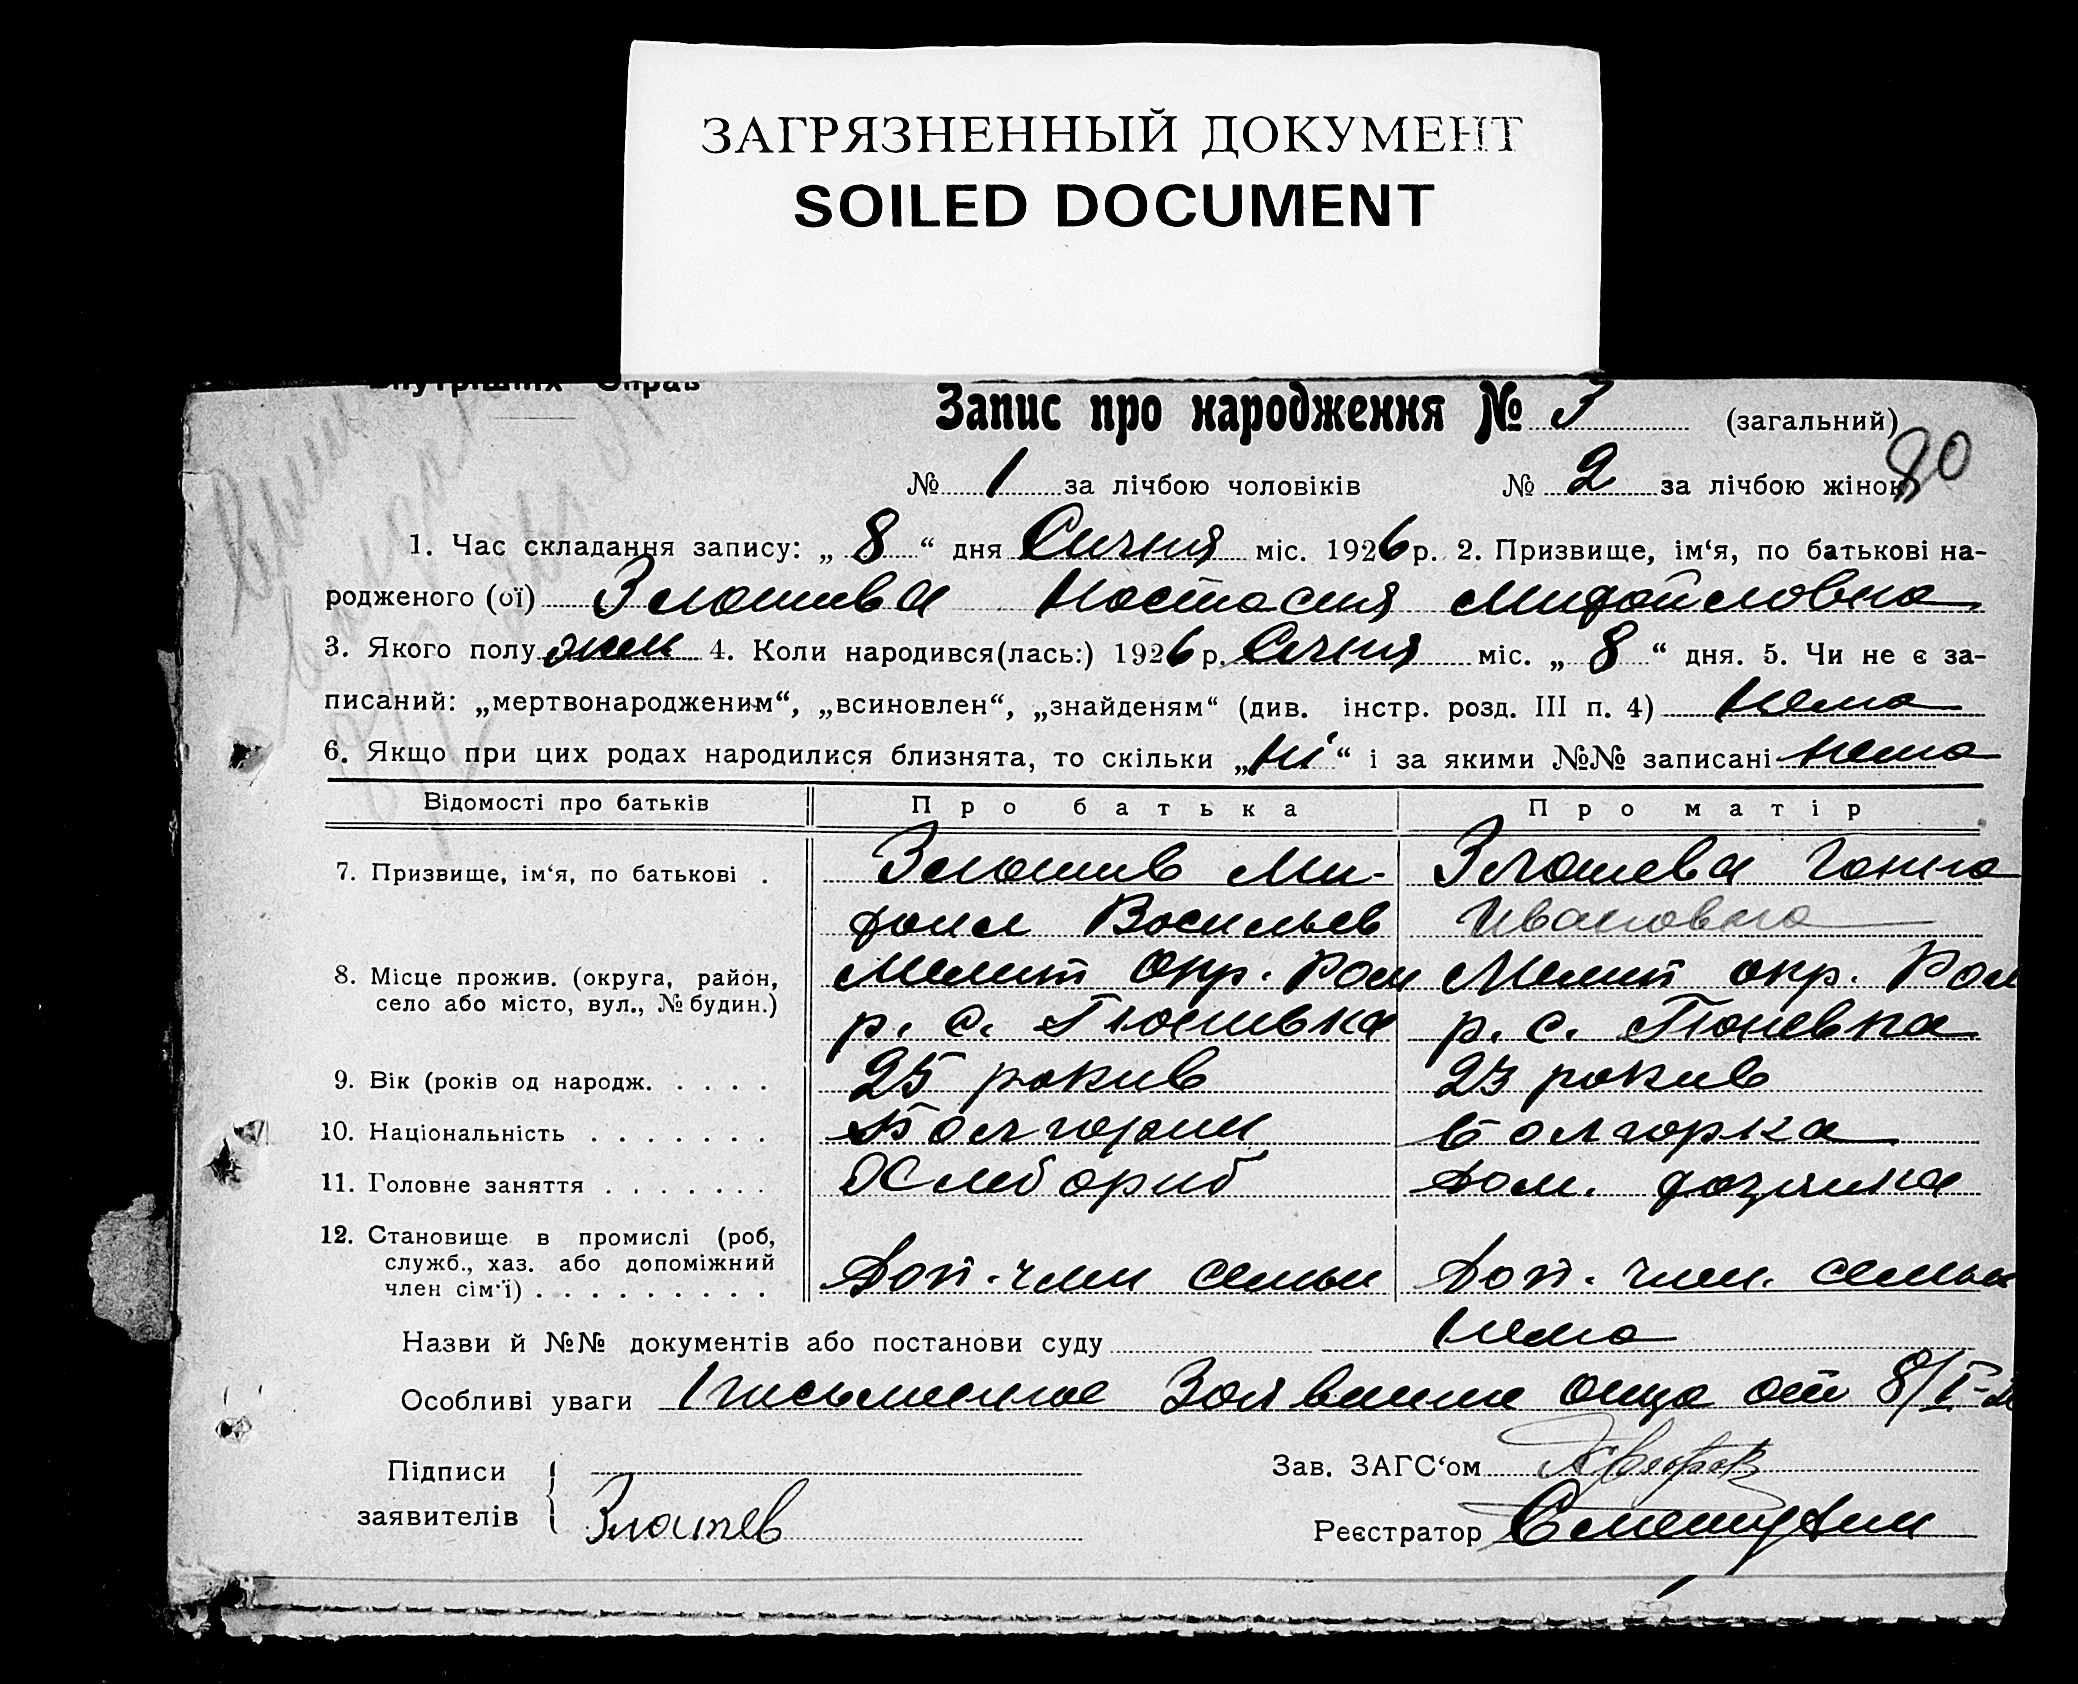 ЗАГРЯЗНЕННЫЙ ДОКУМЕНТ
SOILED DOCUMENT
Внутрішніх Справ
Запис про народження № 3 (загальний)
80
№ 1 за лічбою чоловіків № 2 за лічбою жінок
1. Час складання запису: „ 8 “ дня Сичня міс. 1926 р. 2. Призвище, ім‘я, по батькові на-
родженого (ої) Злотива Настасия Михайловна
3. Якого полу жен 4. Коли народився(лась:) 1926 р. Сичня міс. „ 8 “ дня. 5. Чи не є за-
писаний: „мертвонародженим“, „всиновлен“, „знайденям“ (див. інстр. розд. III п. 4) Нема
6. Якщо при цих родах народилися близнята, то скільки „Ні“ і за якими №№ записані нема
Відомості про батьків Про батька Про матір
7. Призвище, ім‘я, по батькові . Злотив Ми- Злотева Ганна
хаил Васильев Ивановна
8. Місце прожив. (округа, район, Мелит Окр. Ром Мелит окр. Ром
село або місто, вул., № будин.) р. с. Гюнивка р. с. Гюневка
9. Вік (років од народж. . . . . 25 рокив 23 рокив
10. Національність . . . . . . . Болгорин болгорка
11. Головне заняття . . . . . . . Хлебориб Дом. хозяика
12. Становище в промислі (роб,
служб., хаз. або допоміжний
член сім‘ї) . . . . . . . . . . Доп. член семьи Доп. член. семьи
Назви й №№ документів або постанови суду Нема
Особливі уваги Письменное Заявление отца от 8/I-2
Підписи Зав. ЗАГС‘ом
заявителів Златев Реєстратор